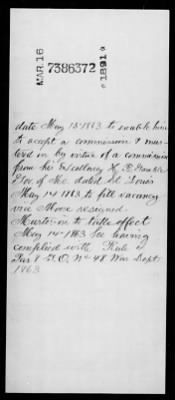 MAR. 16
7386372
1891
date May 13-1863 to enable him
to accept a commission & mus-
tered in by virtue of a commission
from his Excellency H. R. Gamble
Gov. of Mo. dated St. Louis
May 14 1863 to fill vacancy
vice Moore resigned.
Muster-in to take effect
May 14-1863 he having
complied with Rule
Par 8 G.O. No 48 War Dept
1863